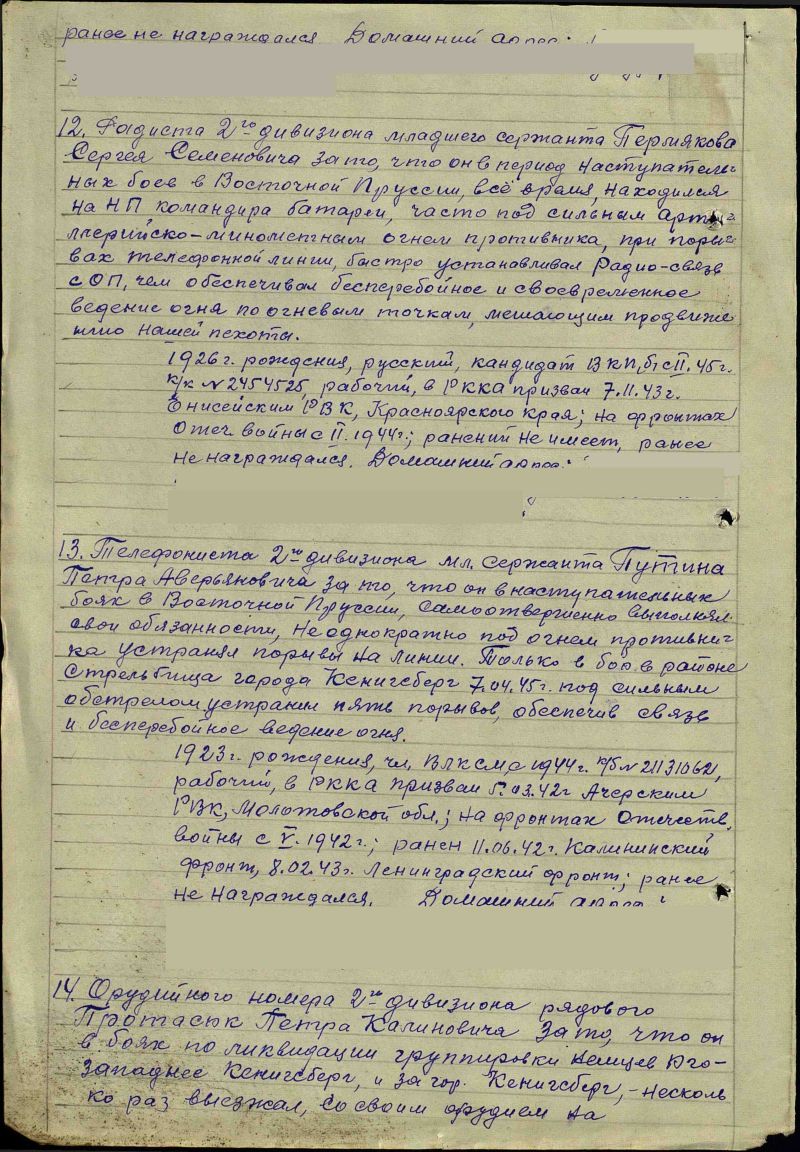 ранее не награждался. Домашний адрес:
12. Радиста 2го дивизиона младшего сержанта Пермякова
Сергея Семеновича за то, что он в период наступатель-
ных боев в Восточной Пруссии, всё время, находился
на НП командира батареи, часто под сильным арти-
ллерийско-минометным огнем противника, при поры-
вах телефонной линии, быстро устанавливал радио-связь
с ОП, чем обеспечивал бесперебойное и своевременное
ведение огня по огневым точкам, мешающим продвиже
нию нашей пехоты.
1926 г. рождения, русский, кандидат ВКП/б с II.45г.
к/к №2454525, рабочий, в РККА призван 7.11.43г.
Енисейским РВК, Красноярского края; на фронтах
Отеч. войны с II.1944г.; ранений не имеет, ранее
не награждался. Домашний адрес:
13. Телефониста 2го дивизиона мл. сержанта Путина
Петра Аверьяновича за то, что он в наступательных
боях в Восточной Пруссии, самоотверженно выполнял
свои обязанности, неоднократно под огнем противни-
ка устранял порывы на линии. Только в бою в районе
Стрельбища города Кенигсберг 7.04.45г. под сильным
обстрелом устранил пять порывов, обеспечив связь
и бесперебойное ведение огня.
1923 г. рождения, чл. ВЛКСМ с 1944г. к/б №21131062,
рабочий, в РККА призван 5.03.42г Ачерским
РВК, Молотовской обл.; на фронтах Отечеств.
войны с V.1942г.; ранен 11.06.42г. Калининский
фронт, 8.02.43г. Ленинградский фронт; ранее
не награждался. Домашний адрес:
14. Орудийного номера 2го дивизиона рядового
Протасюк Петра Калиновича за то, что он
в боях по ликвидации группировки немцев юго-
западнее Кенигсберг, и за гор. Кенигсберг, - несколь
ко раз выезжал, со своим орудием на